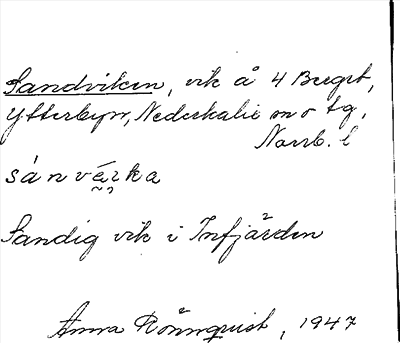 Sandviken, vik å 4 Bergst,
Ytterbyn, Nederkalix sn o tg,
Norrb. l
Sandig vik i Infjärden
Anna Rönnquist, 1947